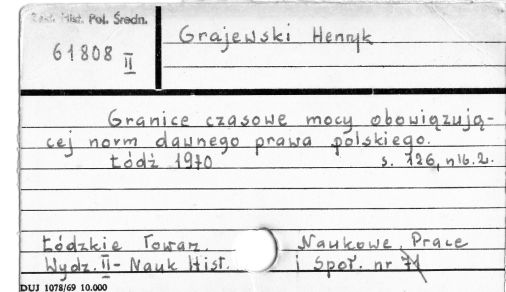 Zakł. Hist. Pol. Średn.
61808 II
Grajewski Henryk
Granice czasowe mocy obowiązują-
cej norm dawnego prawa polskiego.
Łódź 1970 s. 126, nlb. 2.
Łódzkie Towarz. Naukowe, Prace
Wydz. II - Nauk Hist. i Społ. nr 71
DUJ 1078/69 10.000